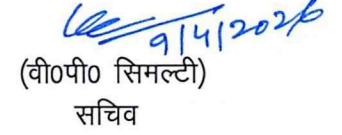 9/4/2026
(वी0पी0 सिमल्टी)
सचिव